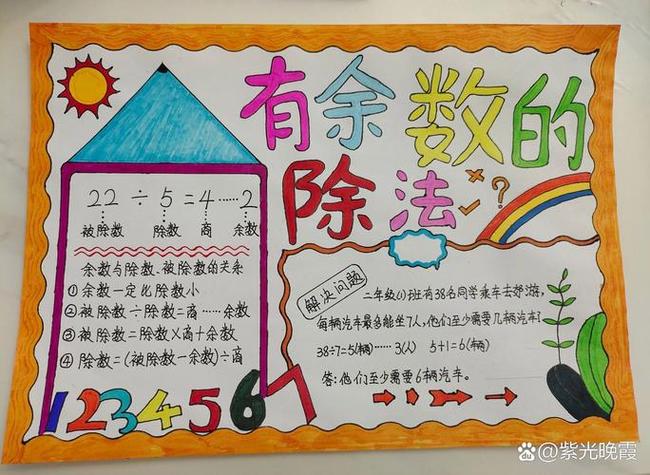 有余数的
除法
22÷5=4……2
被除数 除数 商 余数
余数与除数、被除数的关系
①余数一定比除数小
②被除数÷除数=商……余数
③被除数=除数×商+余数
④除数=(被除数-余数)÷商
1234567
解决问题
二年级(1)班有38名同学乘车去郊游,
每辆汽车最多能坐7人,他们至少需要几辆汽车?
38÷7=5(辆)……3(人) 5+1=6(辆)
答:他们至少需要6辆汽车。
×
✓
?
@紫光晚霞